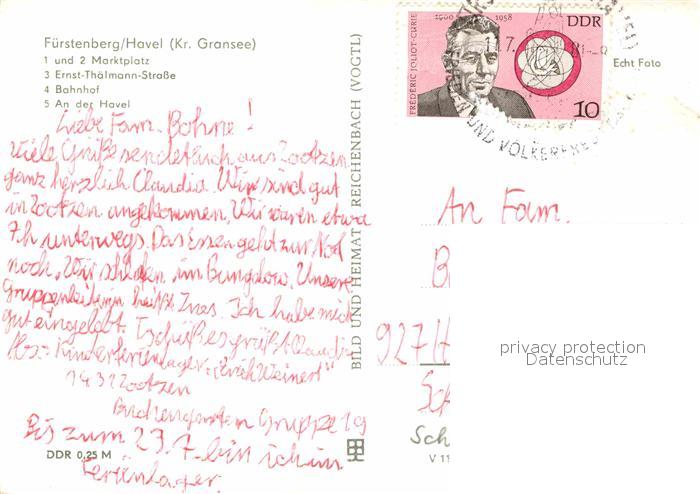 Fürstenberg/Havel (Kr. Gransee)
1 und 2 Marktplatz
3 Ernst-Thälmann-Straße
4 Bahnhof
5 An der Havel
Liebe Fam. Bohne!
Viele Grüße sendet Euch aus Zootzen
ganz herzlich Claudia. Wir sind gut
in Zootzen angekommen. Wir waren etwa
7h unterwegs. Das Essen geht zur Not
noch. Wir schlafen im Bungalow. Unsere
Gruppenleiterin heißt Ines. Ich habe mich
gut eingelebt. Tschüß es grüßt Claudia
Kinderferienlager "Erich Weinert"
1431 Zootzen
Gruppe 19
Bis zum 23.7. bin ich im
Ferienlager
DDR 0,25 M
BILD UND HEIMAT REICHENBACH (VOGTL)
1900 1958
DDR
FRÉDÉRIC JOLIOT-CURIE
10
UND VÖLKERFRE
Echt Foto
An Fam.
B
927/H
Sch
Sch
V 11
privacy protection
Datenschutz